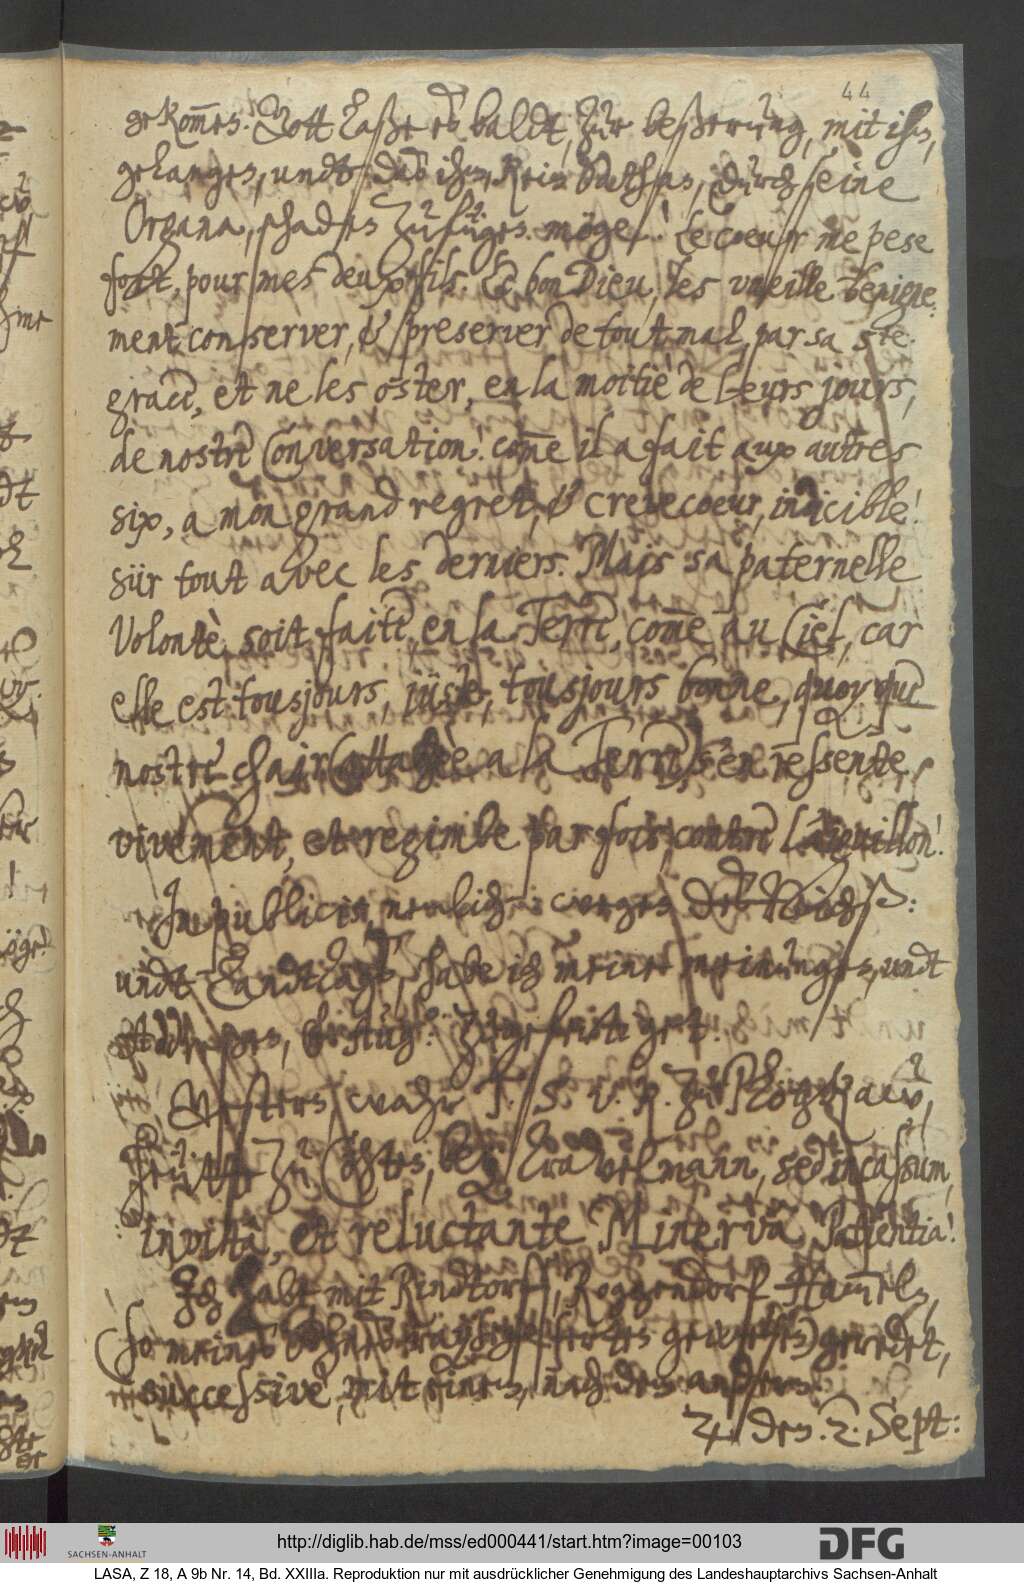 44
gekom̄en. Gott laße es baldt, zur beßerung, mit ihm,
gelangen, undt das ihm, kein Sathan, durch seine
Organa, schaden zufügen möge! Le coeur me pese
fort, pour mes deux fils. Le bon Dieu, les vueille benigne¬
ment conserver, & preserver de tout mal, par sa ste.
grace, et ne les oster, en la moitiè de leurs jours,
de nostre Conversation! com̄e il a fait aux autres
six, a mon grand regret, & crevecoeur, indicible!
sür tout avec les derniers. Mais sa paternelle
Volontè soit faite, en la Terre, com̄e au Ciel, car
elle est tousjours, jüste, tousjours bonne, quoy que
nostre chair (attachèe a la Terre) s'en ressente,
vivement, et regimbe par fois, contre l'aiguillon!
In publicis, neulich: wegen des Reichs:
undt Landtags, habe ich meine meinungen, undt
zugefertiget!
Gestern, wahr S. v. P. zu Plötzkaw,
heütte zu Cöhten, bey Erdvelmann, sed in cassum,
invita, et reluctante Minerva. Patientia!
Ich habe mit Rindtorff, Roggendorf, Hameln,
(so meines Sohns gewesen) geredet,
successive, mit einem, nach dem andern.
♃ den 2. Sept:
SACHSEN-ANHALT
http://diglib.hab.de/mss/ed000441/start.htm?image=00103
DFG
LASA, Z 18, A 9b Nr. 14, Bd. XXIIIa. Reproduktion nur mit ausdrücklicher Genehmigung des Landeshauptarchivs Sachsen-Anhalt